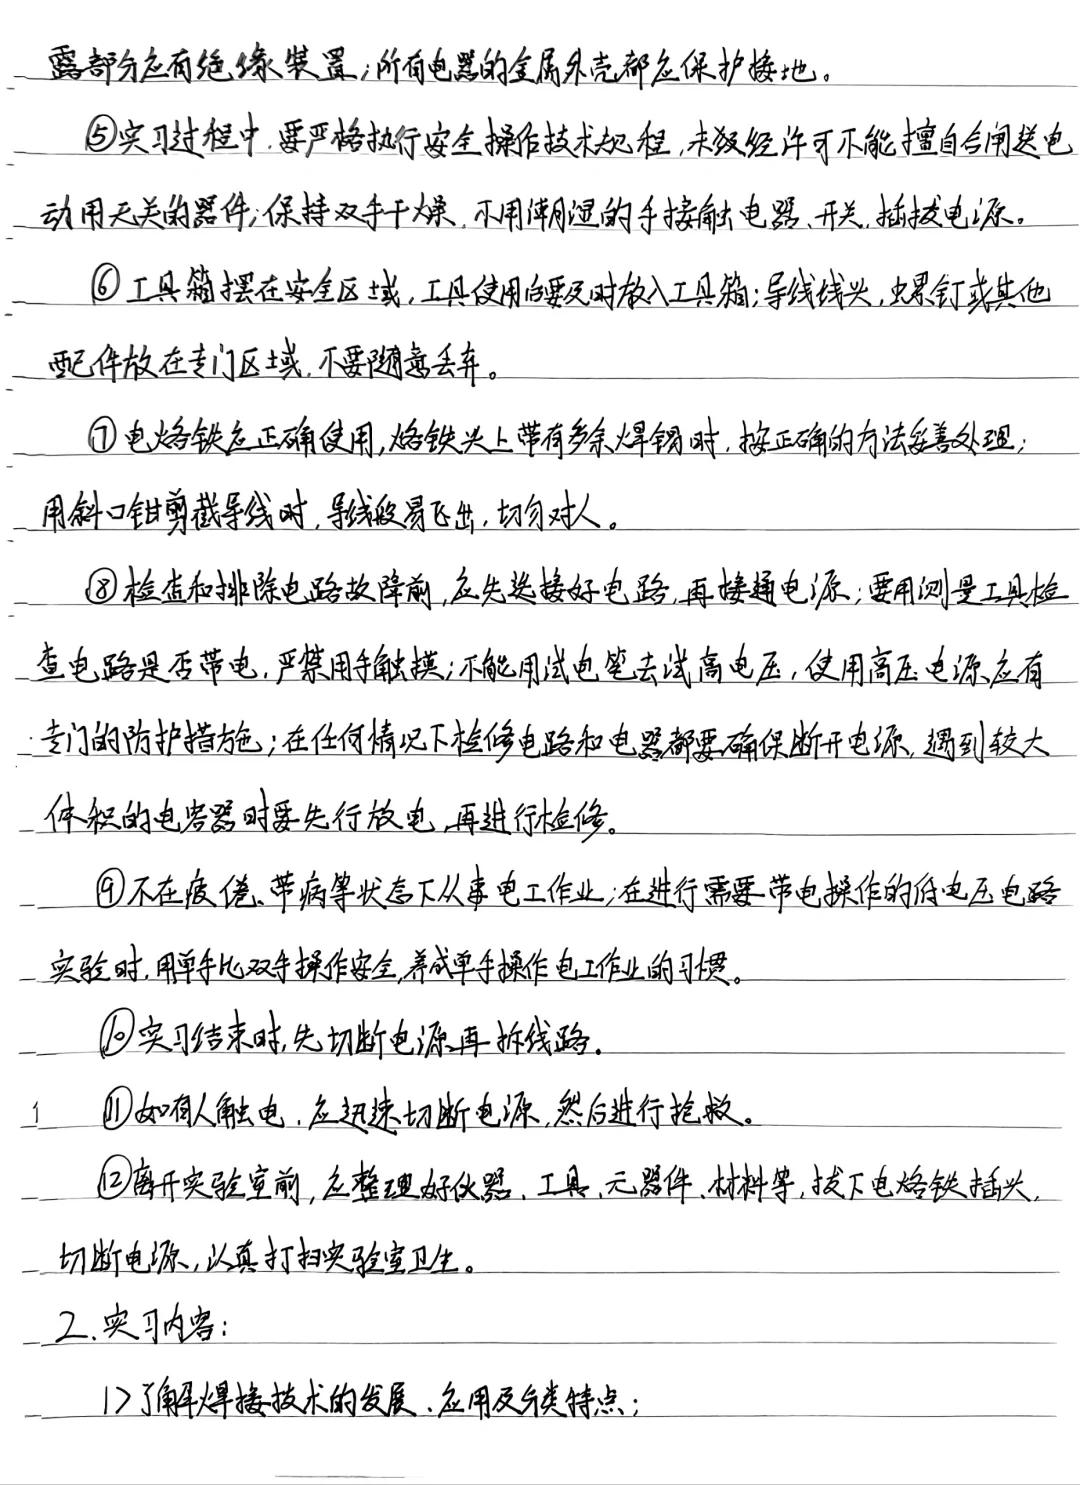 露部分应有绝缘装置;所有电器的金属外壳都应保护接地。
⑤实习过程中,要严格执行安全操作技术规程,未经许可不能擅自合闸送电
动用开关的器件;保持双手干燥,不用潮湿的手接触电器、开关,插拔电源。
⑥工具箱摆在安全区域,工具使用的要及时放入工具箱;导线线头,螺钉或其他
配件放在专门区域,不要随意丢弃。
⑦电烙铁应正确使用,烙铁头上带有多余焊锡时,按正确的方法妥善处理;
用斜口钳剪截导线时,导线段易飞出,切勿对人。
⑧检查和排除电路故障前,应先连接好电路,再接通电源;要用测量工具检
查电路是否带电,严禁用手触摸;不能用试电笔去试高电压,使用高压电源应有
专门的防护措施;在任何情况下检修电路和电器都要确保断开电源,遇到较大
体积的电容器时要先行放电,再进行检修。
⑨不在疲倦、带病等状态下从事电工作业;在进行需要带电操作的低电压电路
实验时,用单手比双手操作安全,养成单手操作电工作业的习惯。
⑩实习结束时,先切断电源再拆线路.
⑪如有人触电,应迅速切断电源,然后进行抢救。
⑫离开实验室前,应整理好仪器、工具、元器件、材料等,拔下电烙铁插头,
切断电源,认真打扫实验室卫生。
2.实习内容:
1>了解焊接技术的发展、应用及分类特点;